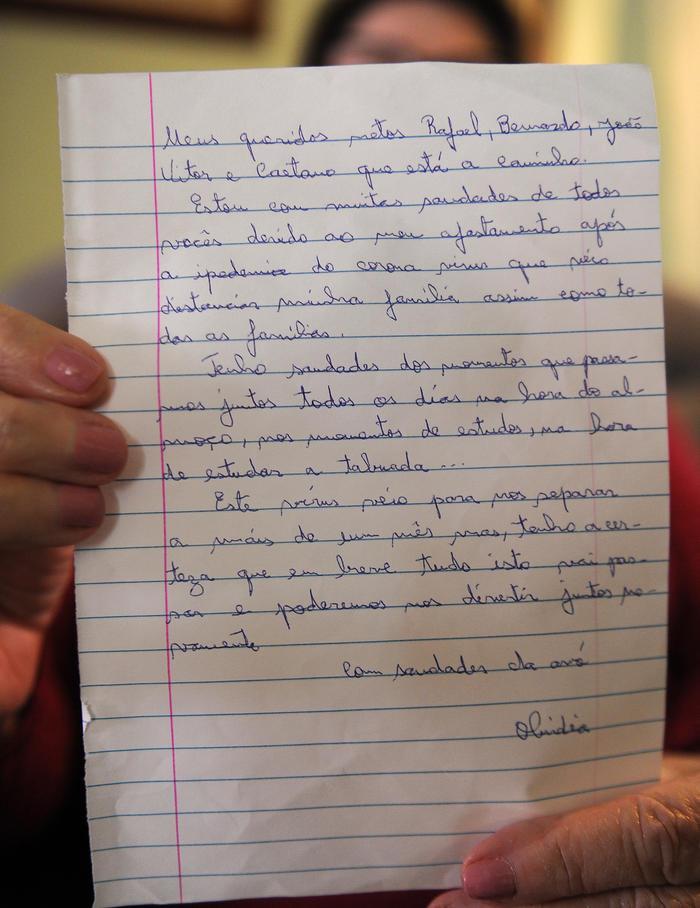 Meus queridos netos Rafael, Bernardo, João
Vitor e Caetano que está a caminho.
Estou com muitas saudades de todos
vocês devido ao meu afastamento após
a ipedemia do corona virus que véio
distanciar minha familia assim como to-
das as famílias.
Tenho saudades dos momentos que passa-
mos juntos todos os dias na hora do al-
moço, nos momentos de estudos, na hora
de estudar a tabuada...
Este vírus véio para nos separar
a máis de um mês mas, tenho a cer-
teza que em breve tudo isto vai pas-
sar e poderemos nos divertir juntos no-
vamente
Com saudades da avó